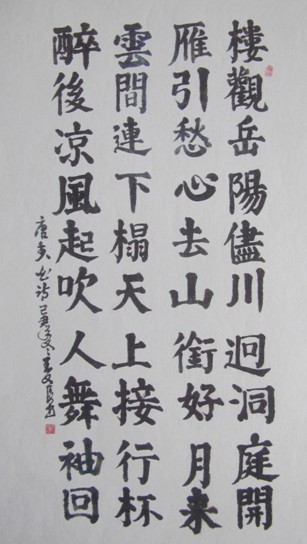 樓觀岳陽儘川迥洞庭開
雁引愁心去山銜好月来
雲間連下榻天上接行杯
醉後凉風起吹人舞袖回